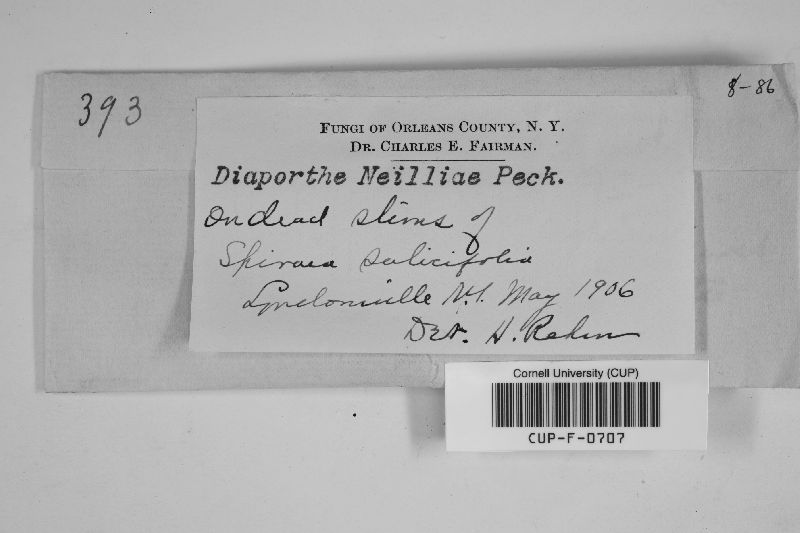 393
8-86
FUNGI OF ORLEANS COUNTY, N. Y.
DR. CHARLES E. FAIRMAN.
Diaporthe Neilliae Peck.
On dead stems of
Spiraea salicifolia
Lyndonville N.Y. May 1906
Det. H. Rehm
Cornell University (CUP)
CUP-F-0707